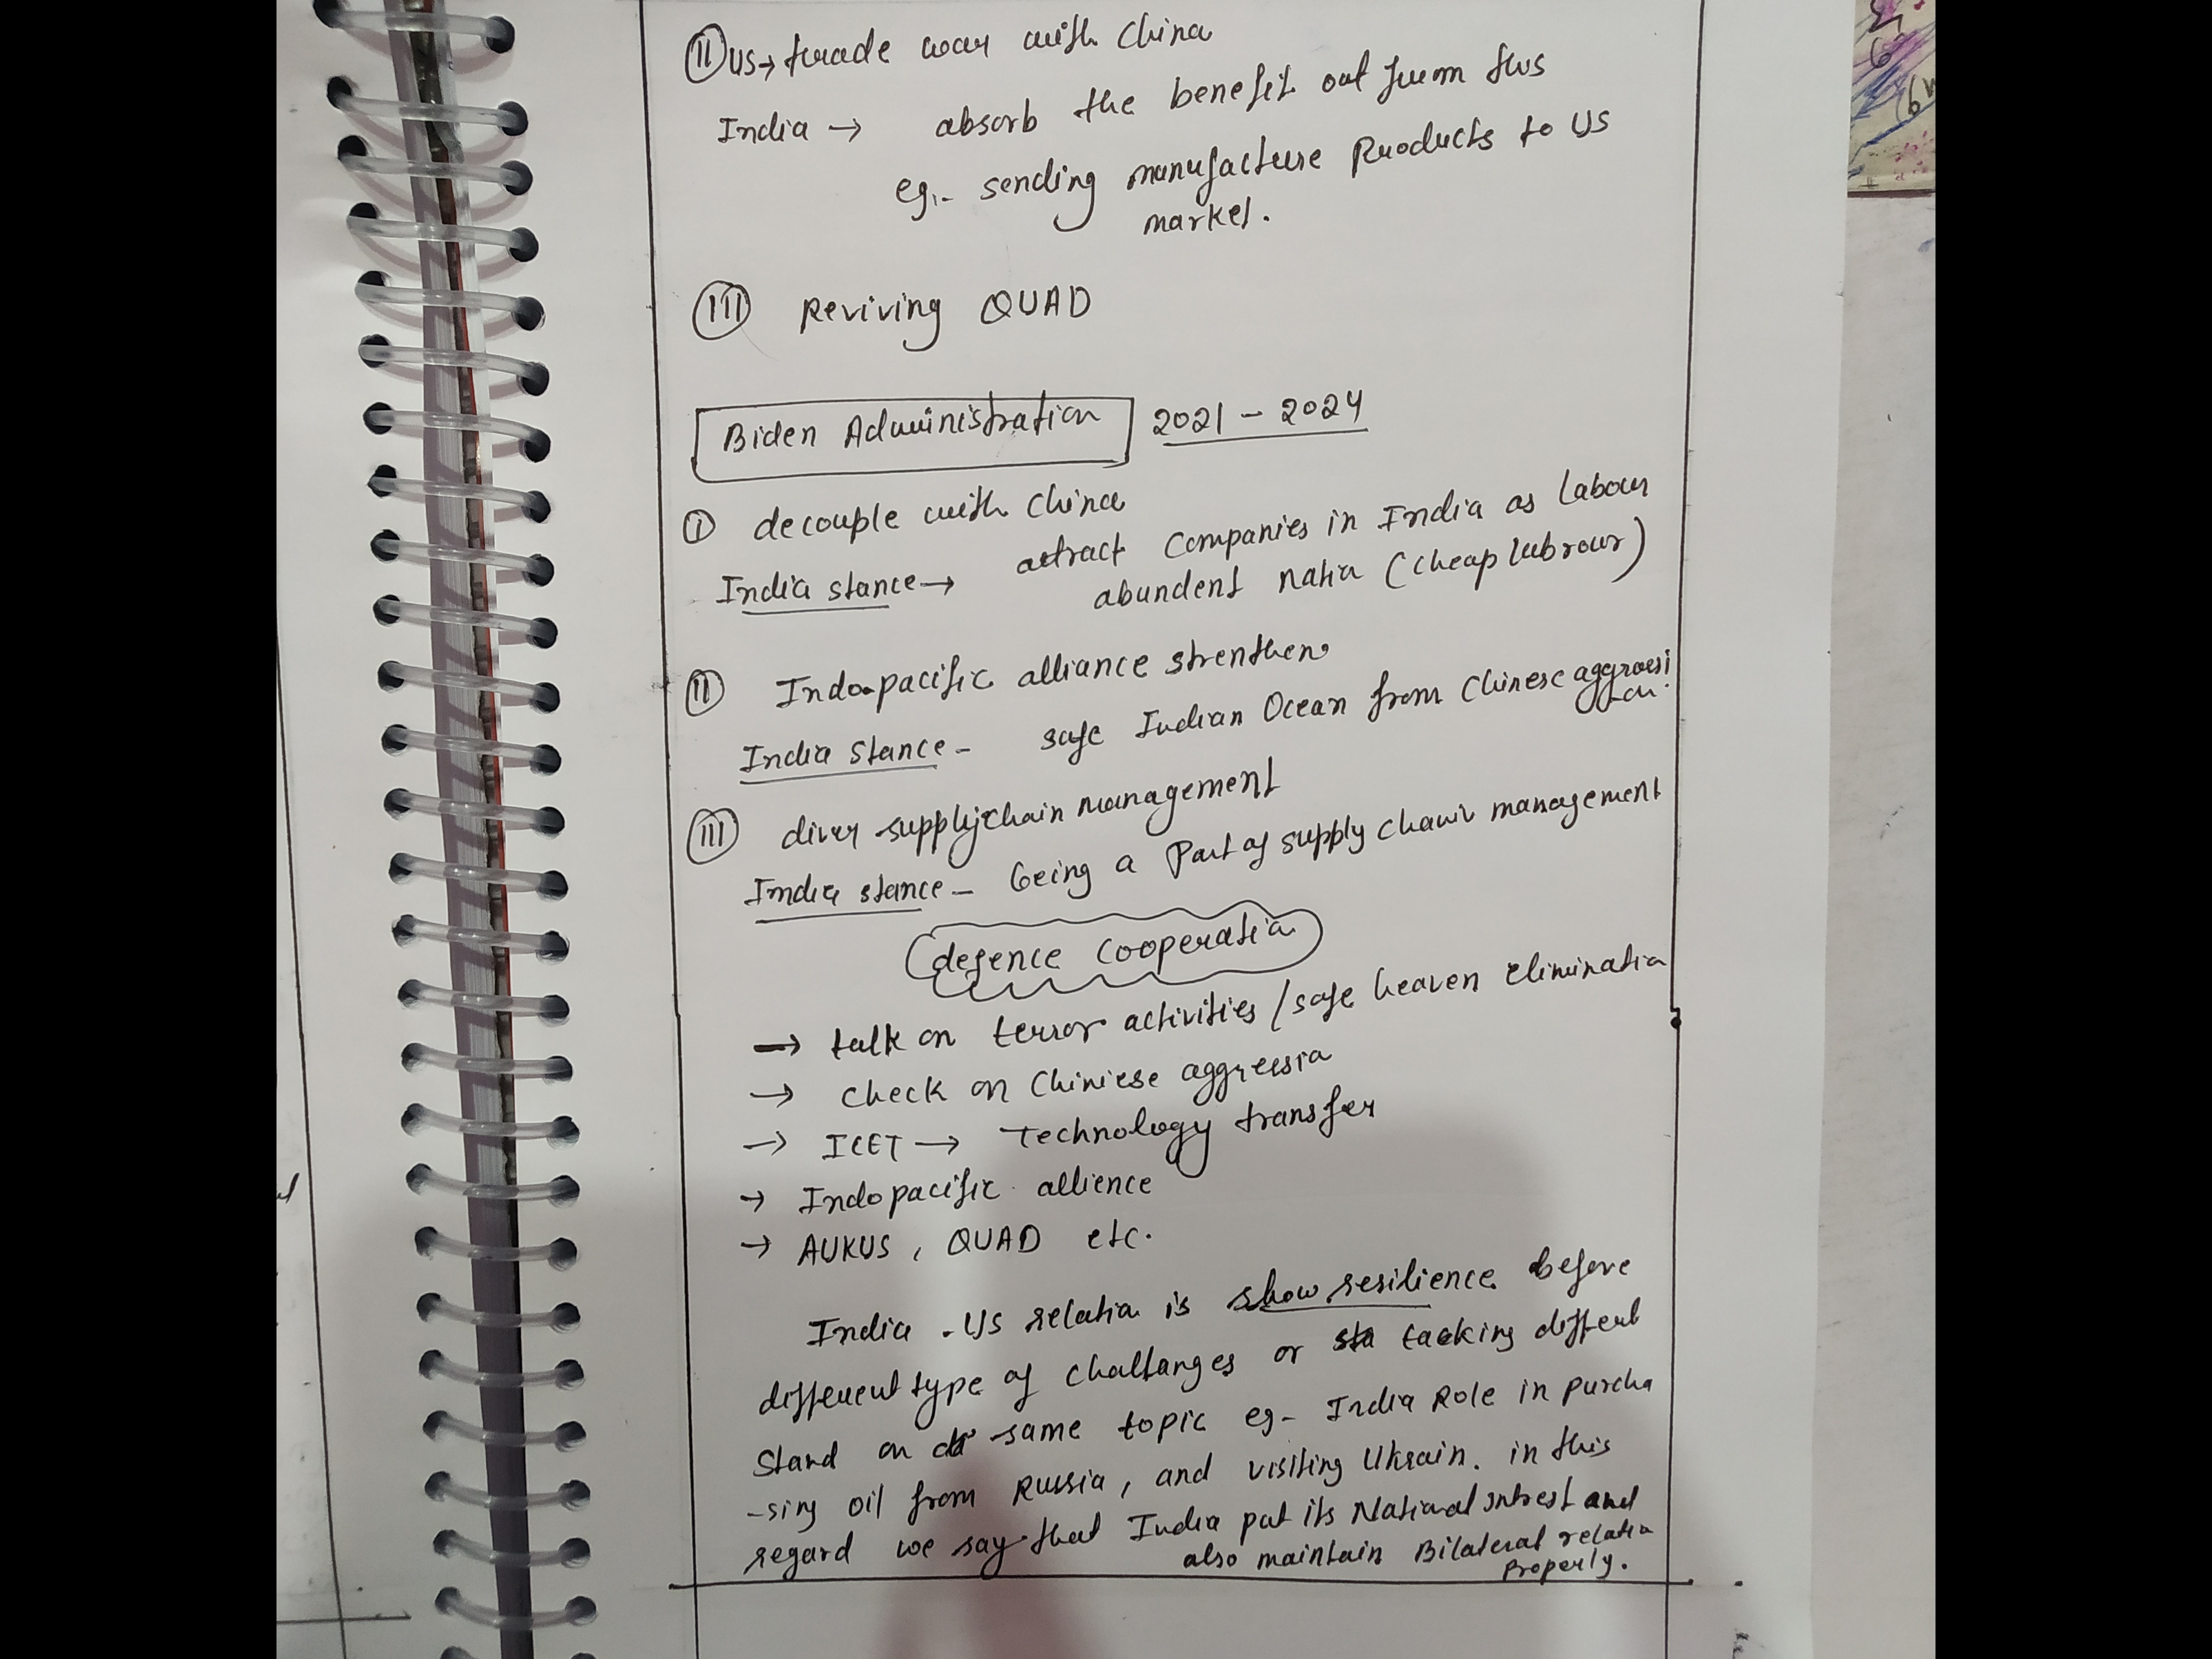 II US→ trade war with China
India → absorb the benefit out from this
eg.- sending manufacture products to US
market.
III Reviving QUAD
Biden Administration 2021 - 2024
I decouple with China
attract companies in India as labour
India stance → abundent natio (cheap labrour)
II Indo-pacific alliance strenthen
India stance - safe Indian Ocean from Chinese aggressi
on.
III diver supplychain management
India stance - being a part of supply chain management
defence cooperatio
→ talk on terror activities / safe heaven eliminatio
→ check on Chiniese aggressio
→ ICET → Technology transfer
→ Indopacific allience
→ AUKUS, QUAD etc.
India - US relatio is show resilience before
different type of challanges or tacking differt
stand on same topic eg- India Role in purcha
-sing oil from Russia, and visiting Ukrain. in this
regard we say that India put its National intrest and
also maintain Bilateral relatio
properly.